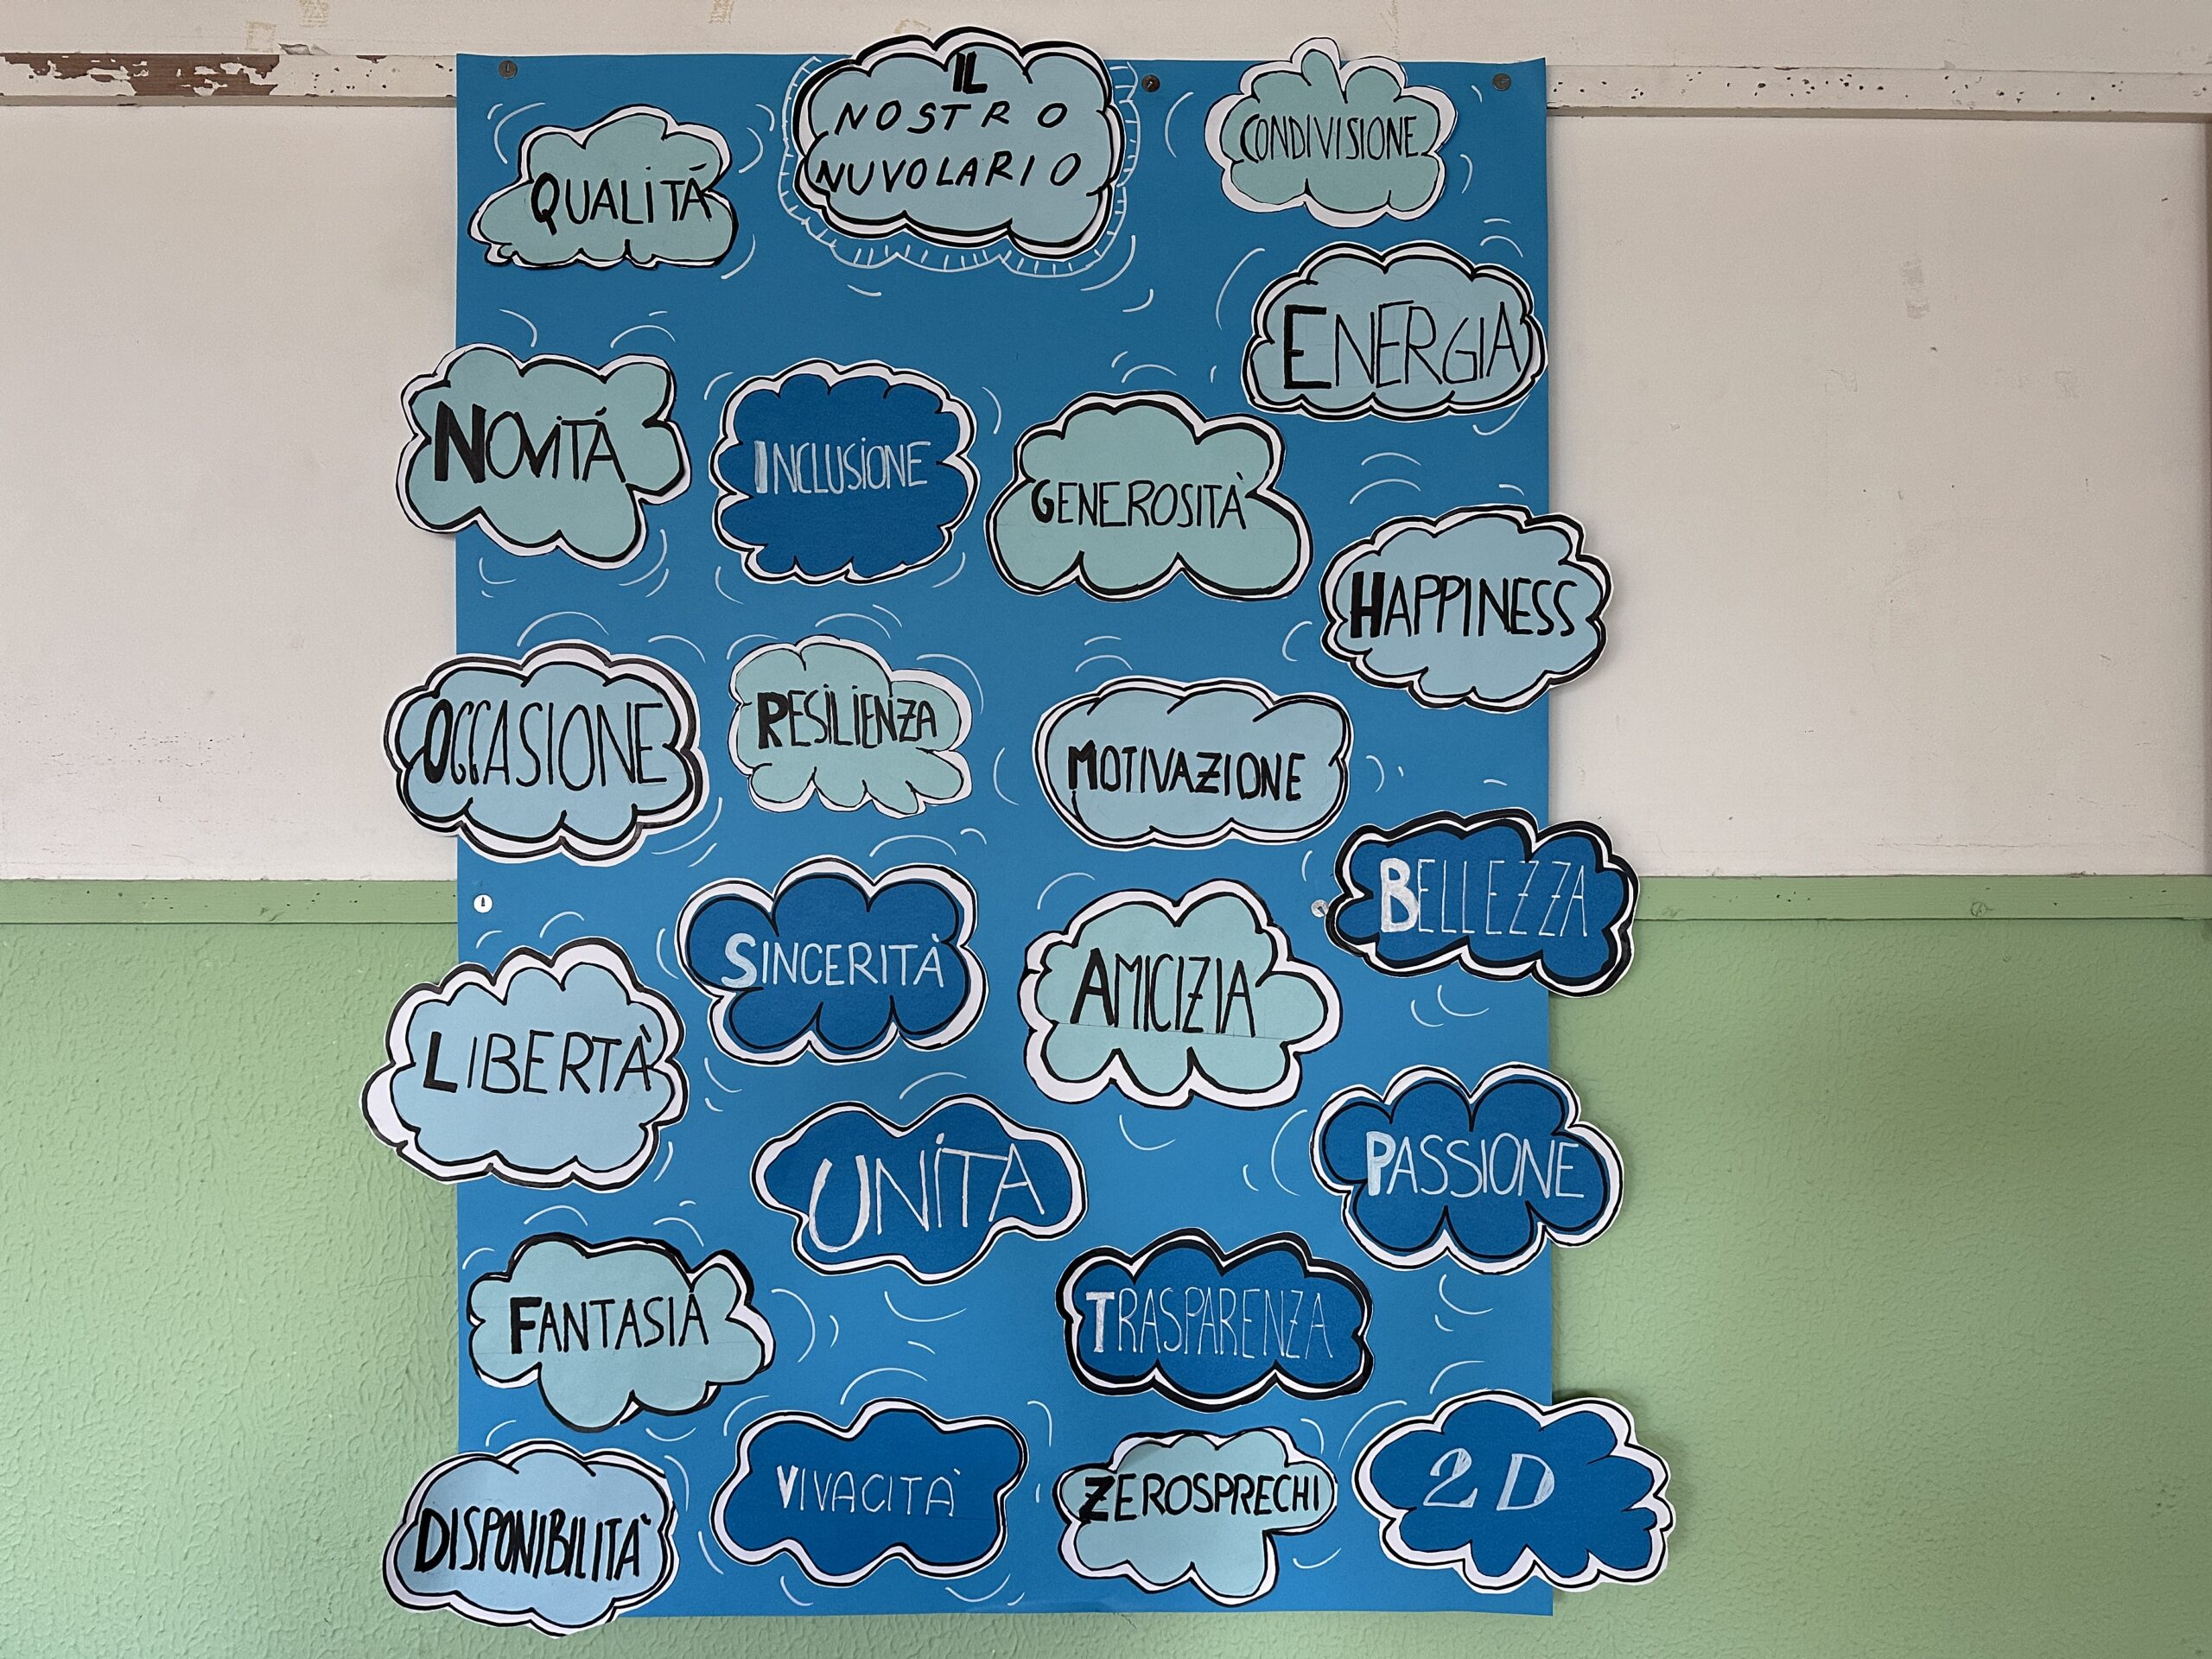 IL
NOSTRO
NUVOLARIO
QUALITÁ
CONDIVISIONE
ENERGIA
NOVITÁ
INCLUSIONE
GENEROSITÀ
HAPPINESS
OCCASIONE
RESILIENZA
MOTIVAZIONE
BELLEZZA
SINCERITÀ
AMICIZIA
LIBERTÀ
UNITÀ
PASSIONE
FANTASIA
TRASPARENZA
DISPONIBILITÀ
VIVACITÀ
ZEROSPRECHI
2D